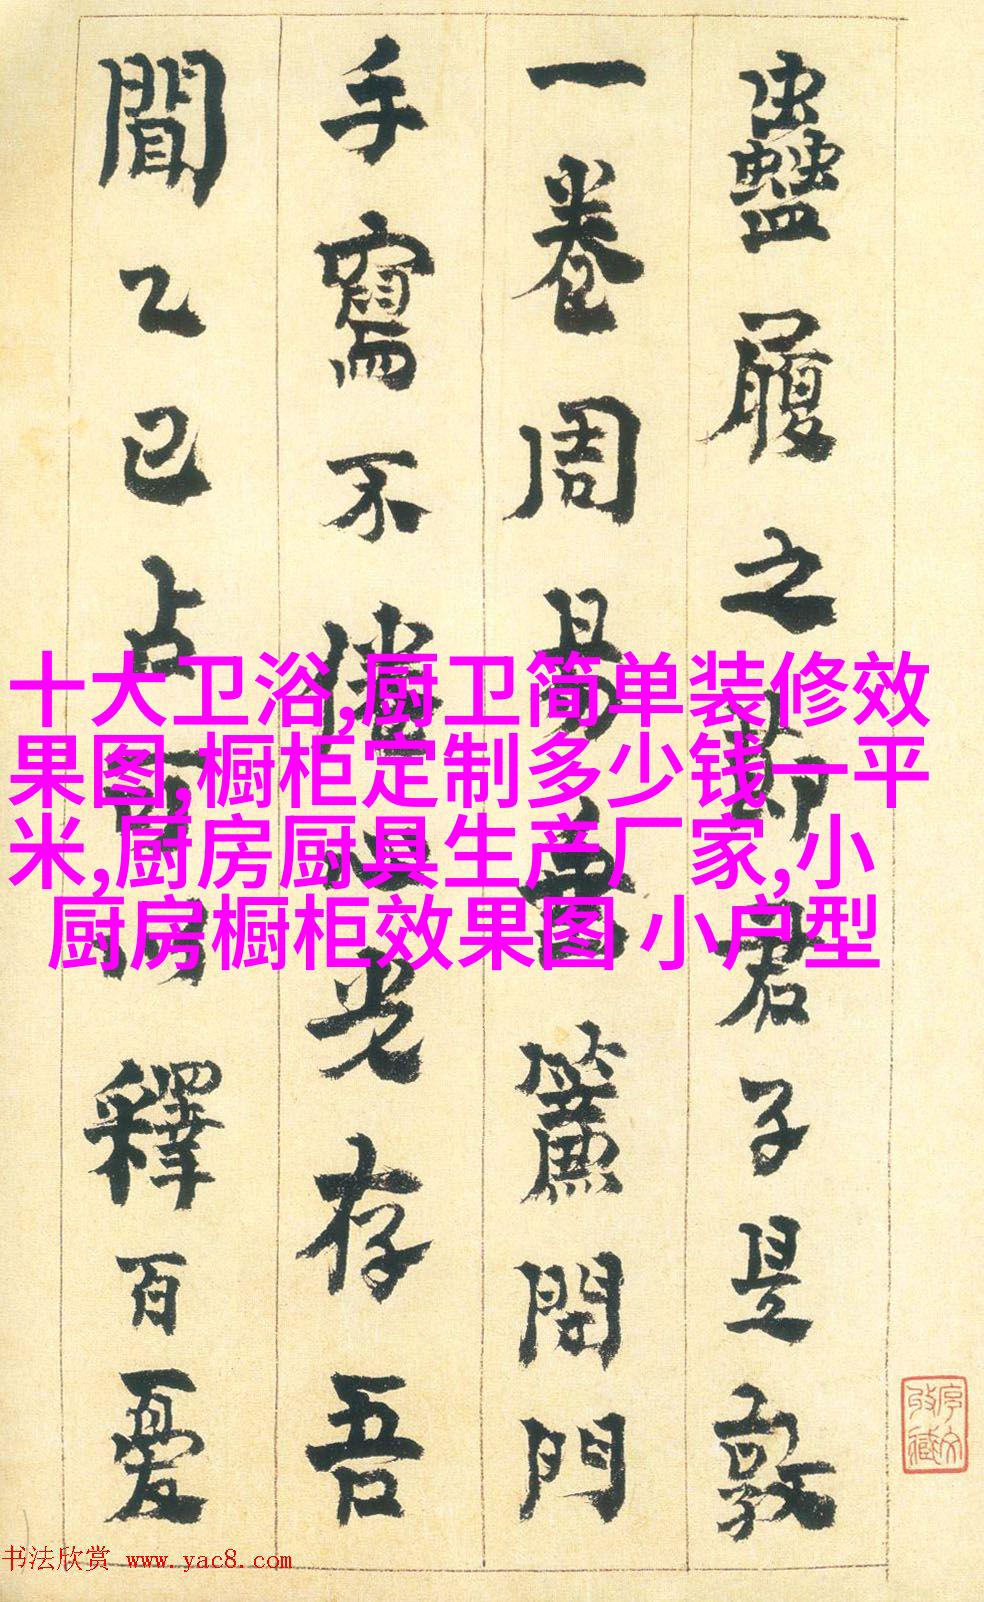 蠱履之斯君子是敦
一卷周易簾閉門
手寫不光存吾
聞乙巳占釋百憂
十大卫浴,厨卫简单装修效
果图,橱柜定制多少钱一平
米,厨房厨具生产厂家,小
厨房橱柜效果图 小户型
书法欣赏 www.yac8.com